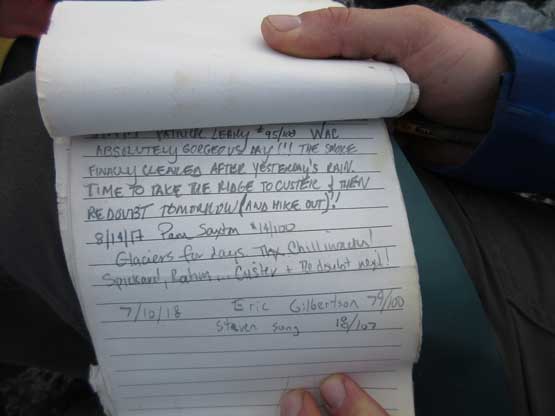 PATRICK LEAHY #95/100 WAC
ABSOLUTELY GORGEOUS DAY!!! THE SMOKE
FINALLY CLEARED AFTER YESTERDAY'S RAIN.
TIME TO TAKE THE RIDGE TO CUSTER & THEN
REDOUBT TOMORROW (AND HIKE OUT)!!
8/14/17 Pam Saxton #14/100
Glaciers for days. Thx Chilliwacks!
Spickard, Rahm... Custer + Redoubt next!
7/10/18 Eric Gilbertson 79/100
Steven Song /107